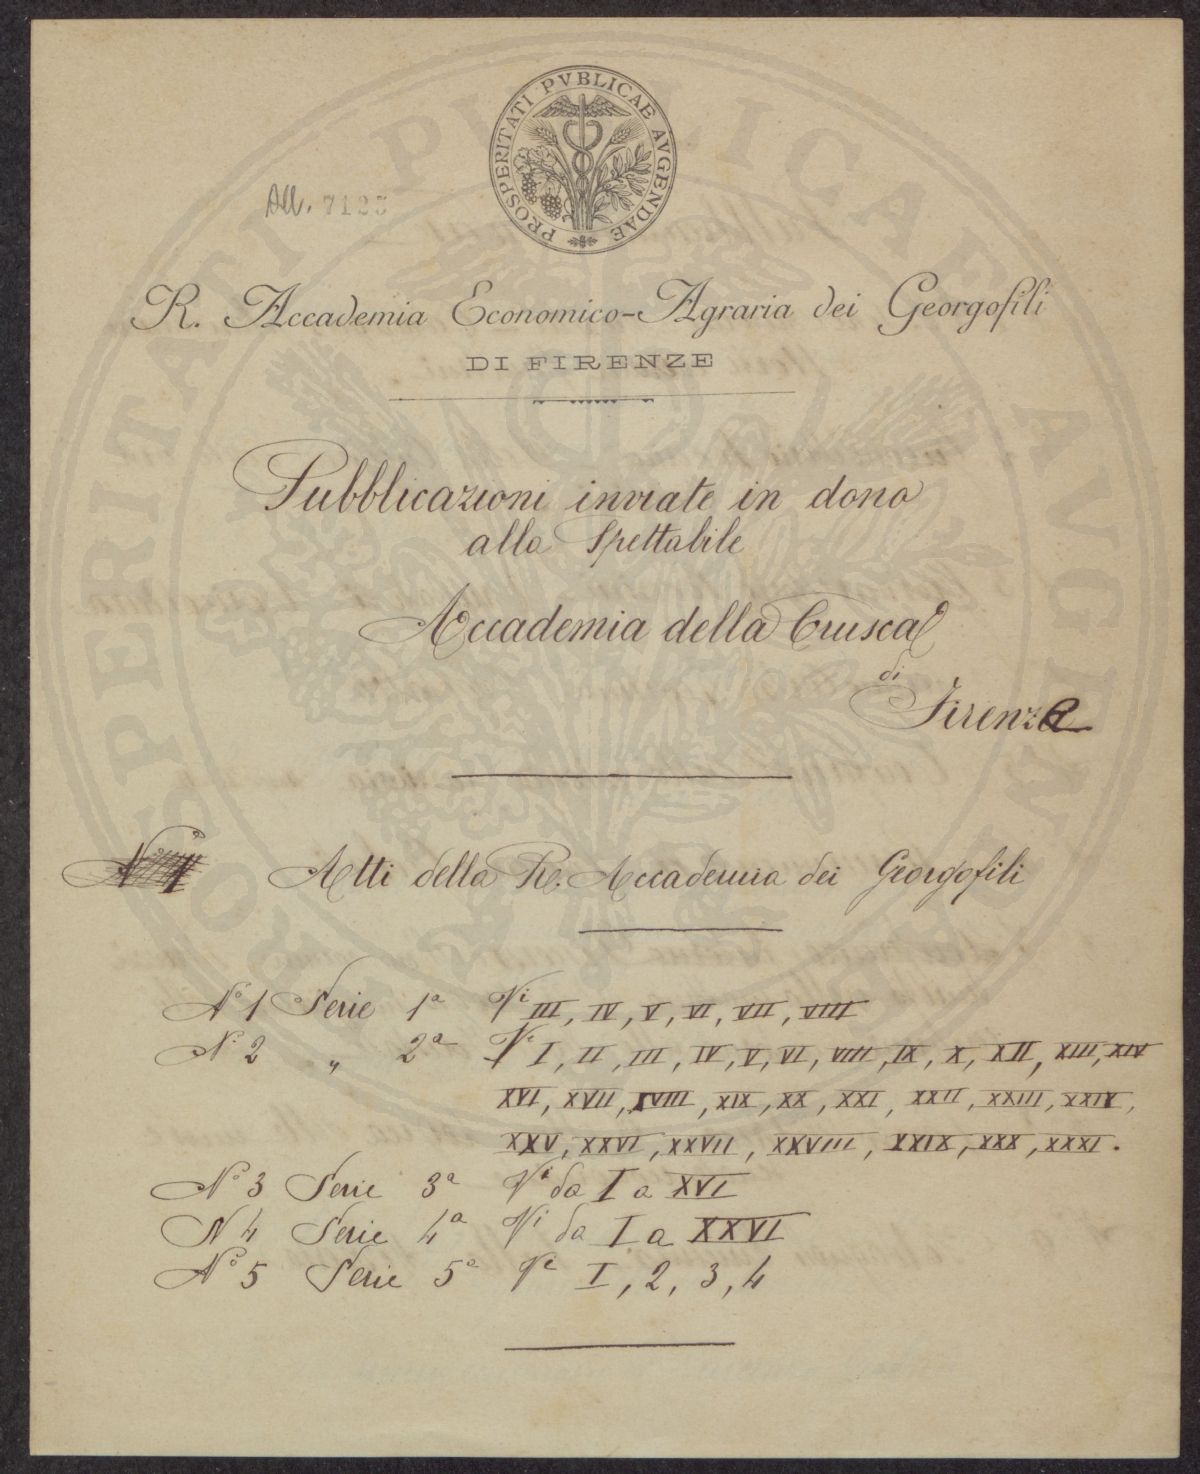 PROSPERITATI PVBLICAE AVGENDAE
All. 7123
R. Accademia Economico-Agraria dei Georgofili
DI FIRENZE
Pubblicazioni inviate in dono
alla Spettabile
Accademia della Crusca
di
Firenze
Atti della R. Accademia dei Georgofili
N° 1 Serie 1ª Vi III, IV, V, VI, VII, VIIII
N° 2 „ 2ª Vi I, II, III, IV, V, VI, VIIII, IX, X, XII, XIII, XIV
XVI, XVII, XVIII, XIX, XX, XXI, XXII, XXIII, XXIV,
XXV, XXVI, XXVII, XXVIII, XXIX, XXX, XXXI.
N° 3 Serie 3ª Vi da I a XVI
N 4 Serie 4ª Vi da I a XXVI
N° 5 Serie 5ª Vi I, 2, 3, 4